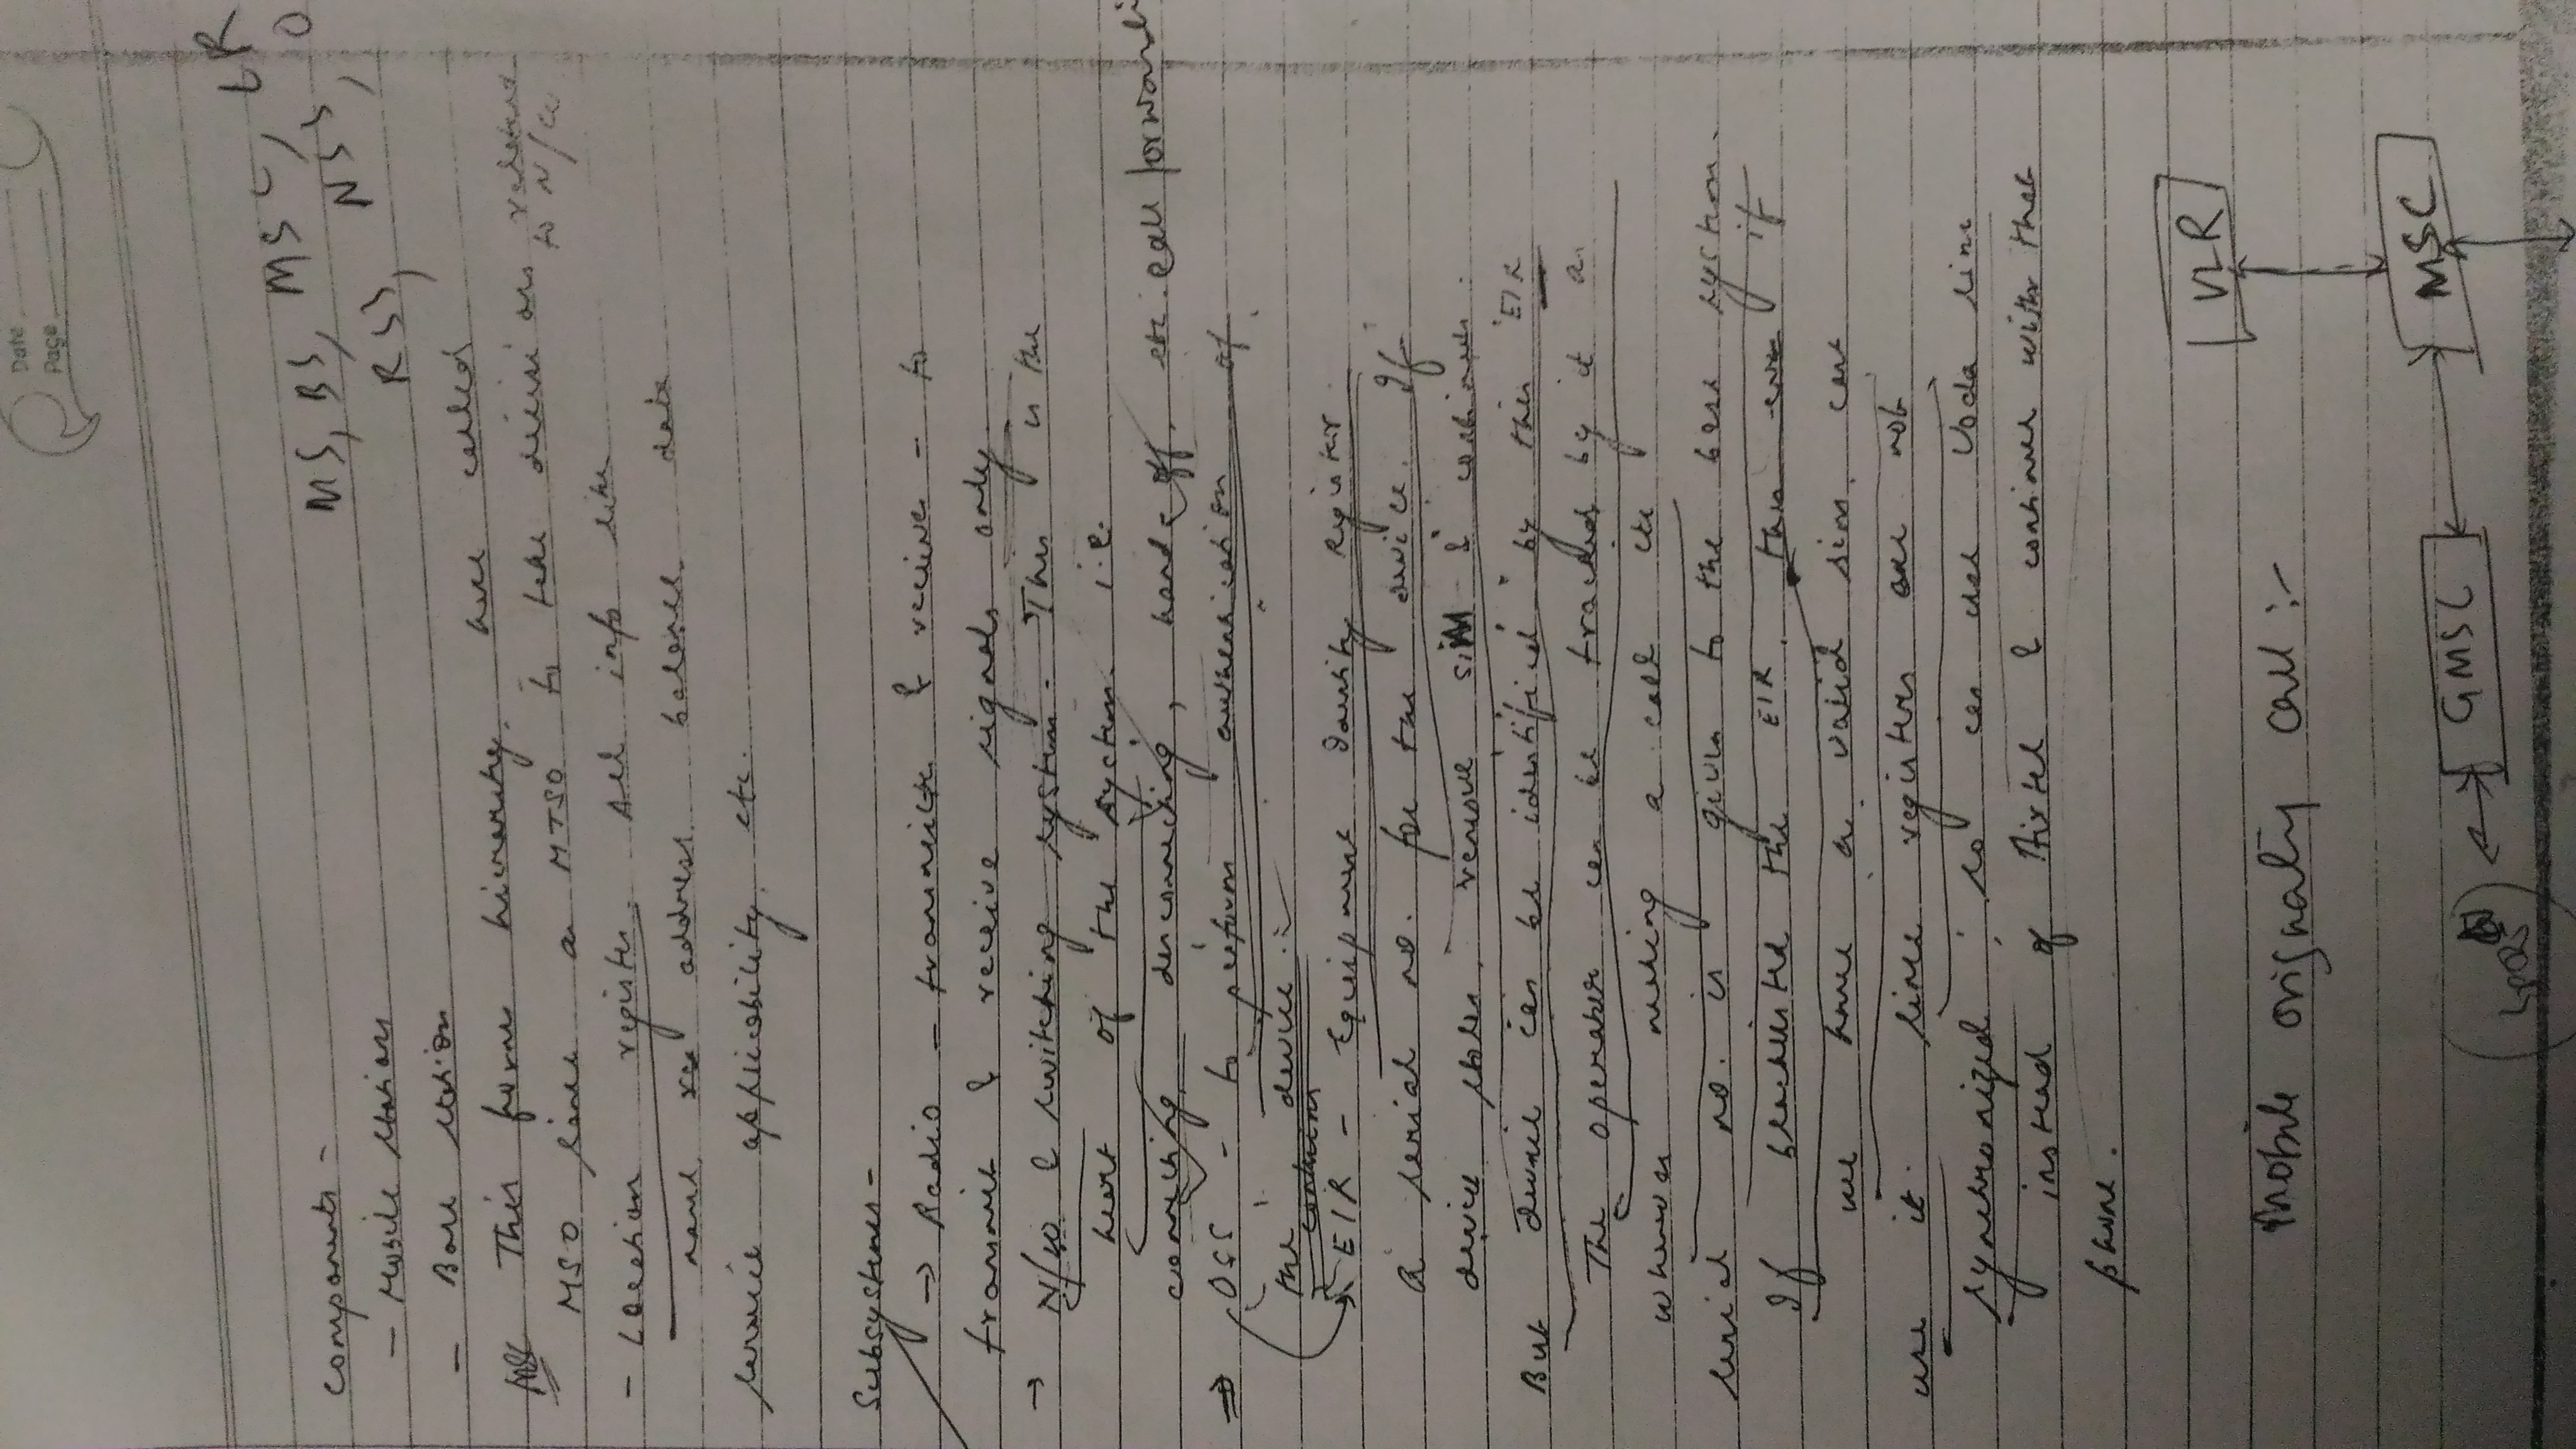 Date
Page
MS, BS, MSC, LR
RSS, NSS, O
Components -
- Mobile stations
- Base station
This forms hierarchy. here called
MSO sends a MTSO to take decisions related to N/w
- Location register. All info like
name, address, balance, data
service applicability, etc.
Subsystems -
→ Radio - transmits & receive - to
transmit & receive signals only
→ N/w & switching system - This is the
heart of the system i.e.
connecting, disconnecting, hand-off, etc. call forwardi
⇒ OSS - to perform authentication of
the device :-
→ EIR - Equipment Identity Register.
A serial no. for the device. If
device stolen, remove SIM & continues.
But device can be identified by this EIR
The operator can be tracked by it a
whenever making a call etc
serial no. is given to the base system.
If blacklisted the EIR, then even if
we have a valid sim, can't
use it. Since registers are not
synchronized, so can use Voda line
instead of Airtel & continue with that
phone.
Mobile originaty call :-
VLR
MSC
GMSC